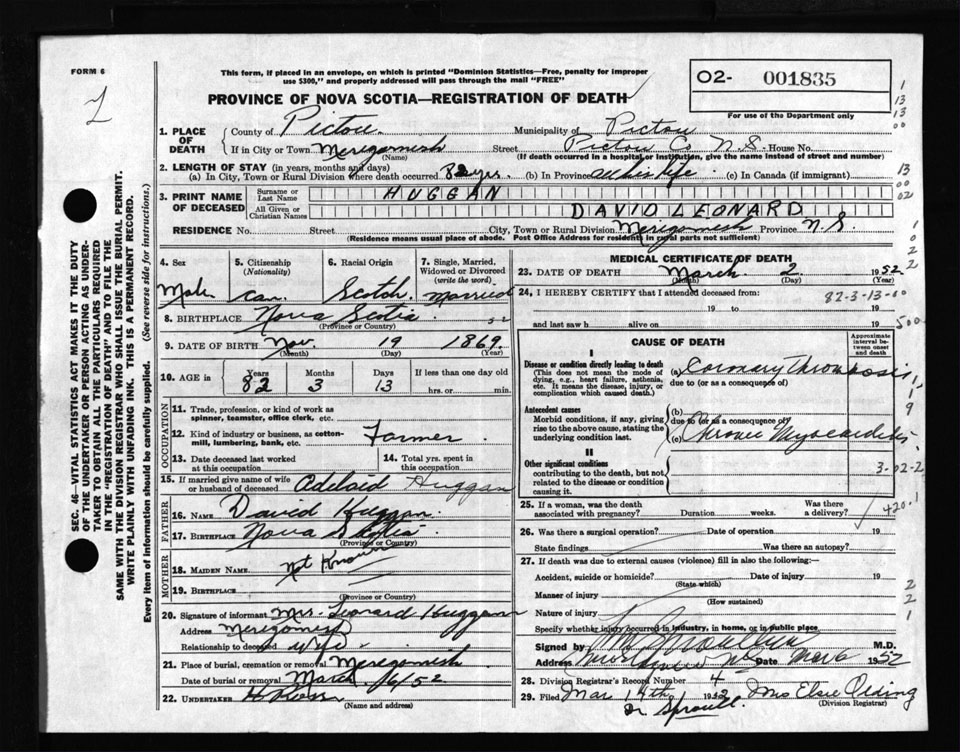 FORM 6
This form, if placed in an envelope, on which is printed "Dominion Statistics—Free, penalty for improper
use $300," and properly addressed will pass through the mail "FREE"
PROVINCE OF NOVA SCOTIA—REGISTRATION OF DEATH
O2- 001835
For use of the Department only
1. PLACE OF DEATH { County of Pictou Municipality of Pictou
If in City or Town Merigomish (Name) Street Pictou Co N.S. House No.
(If death occurred in a hospital or institution, give the name instead of street and number)
2. LENGTH OF STAY (in years, months and days)
(a) In City, Town or Rural Division where death occurred 82 yrs. (b) In Province all his life (c) In Canada (if immigrant)
3. PRINT NAME OF DECEASED { Surname or Last Name HUGGAN
All Given or Christian Names DAVID LEONARD
RESIDENCE No. Street City, Town or Rural Division Merigomish Province N.S.
(Residence means usual place of abode. Post Office Address for residents in rural parts not sufficient)
4. Sex Male
5. Citizenship (Nationality) Can.
6. Racial Origin Scotch
7. Single, Married, Widowed or Divorced (write the word) Married
8. BIRTHPLACE Nova Scotia
(Province or Country)
9. DATE OF BIRTH Nov. 19 1869
(Month) (Day) (Year)
10. AGE in { Years 82 Months 3 Days 13 If less than one day old
hrs. or min.
OCCUPATION
11. Trade, profession, or kind of work as
spinner, teamster, office clerk, etc.
12. Kind of industry or business, as cotton-
mill, lumbering, bank, etc. Farmer
13. Date deceased last worked
at this occupation
14. Total yrs. spent in
this occupation
15. If married give name of wife
or husband of deceased } Adelaid Huggan
FATHER
16. NAME David Huggan
17. BIRTHPLACE Nova Scotia
(Province or Country)
MOTHER
18. MAIDEN NAME Not Known
19. BIRTHPLACE
(Province or Country)
20. Signature of informant Mrs. Leonard Huggan
Address Merigomish
Relationship to deceased Wife
21. Place of burial, cremation or removal Merigomish
Date of burial or removal March 6/52
22. UNDERTAKER
(Name and address)
MEDICAL CERTIFICATE OF DEATH
23. DATE OF DEATH March 2 1952
(Month) (Day) (Year)
24. I HEREBY CERTIFY that I attended deceased from:
82-3-13-
19 to 19
and last saw h alive on 19
500
CAUSE OF DEATH
Approximate interval between onset and death
I
Disease or condition directly leading to death
(This does not mean the mode of
dying, e.g., heart failure, asthenia,
etc. It means the disease, injury, or
complication which caused death.)
(a) Coronary Thrombosis
due to (or as a consequence of)
Antecedent causes
Morbid conditions, if any, giving
rise to the above cause, stating the
underlying condition last.
(b)
due to (or as a consequence of)
(c) Chronic Myocarditis
II
Other significant conditions
contributing to the death, but not
related to the disease or condition
causing it.
3-02-2
25. If a woman, was the death
associated with pregnancy? Duration weeks. Was there
a delivery?
4201
26. Was there a surgical operation? Date of operation 19
State findings Was there an autopsy?
27. If death was due to external causes (violence) fill in also the following:—
Accident, suicide or homicide? Date of injury 19
(State which)
Manner of injury
(How sustained)
Nature of injury
Specify whether injury occurred in industry, in home, or in public place
Signed by M.D.
Address N.S. Date Mar 6 1952
28. Division Registrar's Record Number 4
29. Filed Mar 14th 1952 Mrs Elsie Olding
(Division Registrar)
Dr Sproull.
SEC. 46—VITAL STATISTICS ACT MAKES IT THE DUTY
OF THE UNDERTAKER OR PERSON ACTING AS UNDER-
TAKER TO OBTAIN ALL THE PARTICULARS REQUIRED
IN THE "REGISTRATION OF DEATH" AND TO FILE THE
SAME WITH THE DIVISION REGISTRAR WHO SHALL ISSUE THE BURIAL PERMIT.
WRITE PLAINLY WITH UNFADING INK. THIS IS A PERMANENT RECORD.
Every item of information should be carefully supplied. (See reverse side for instructions.)